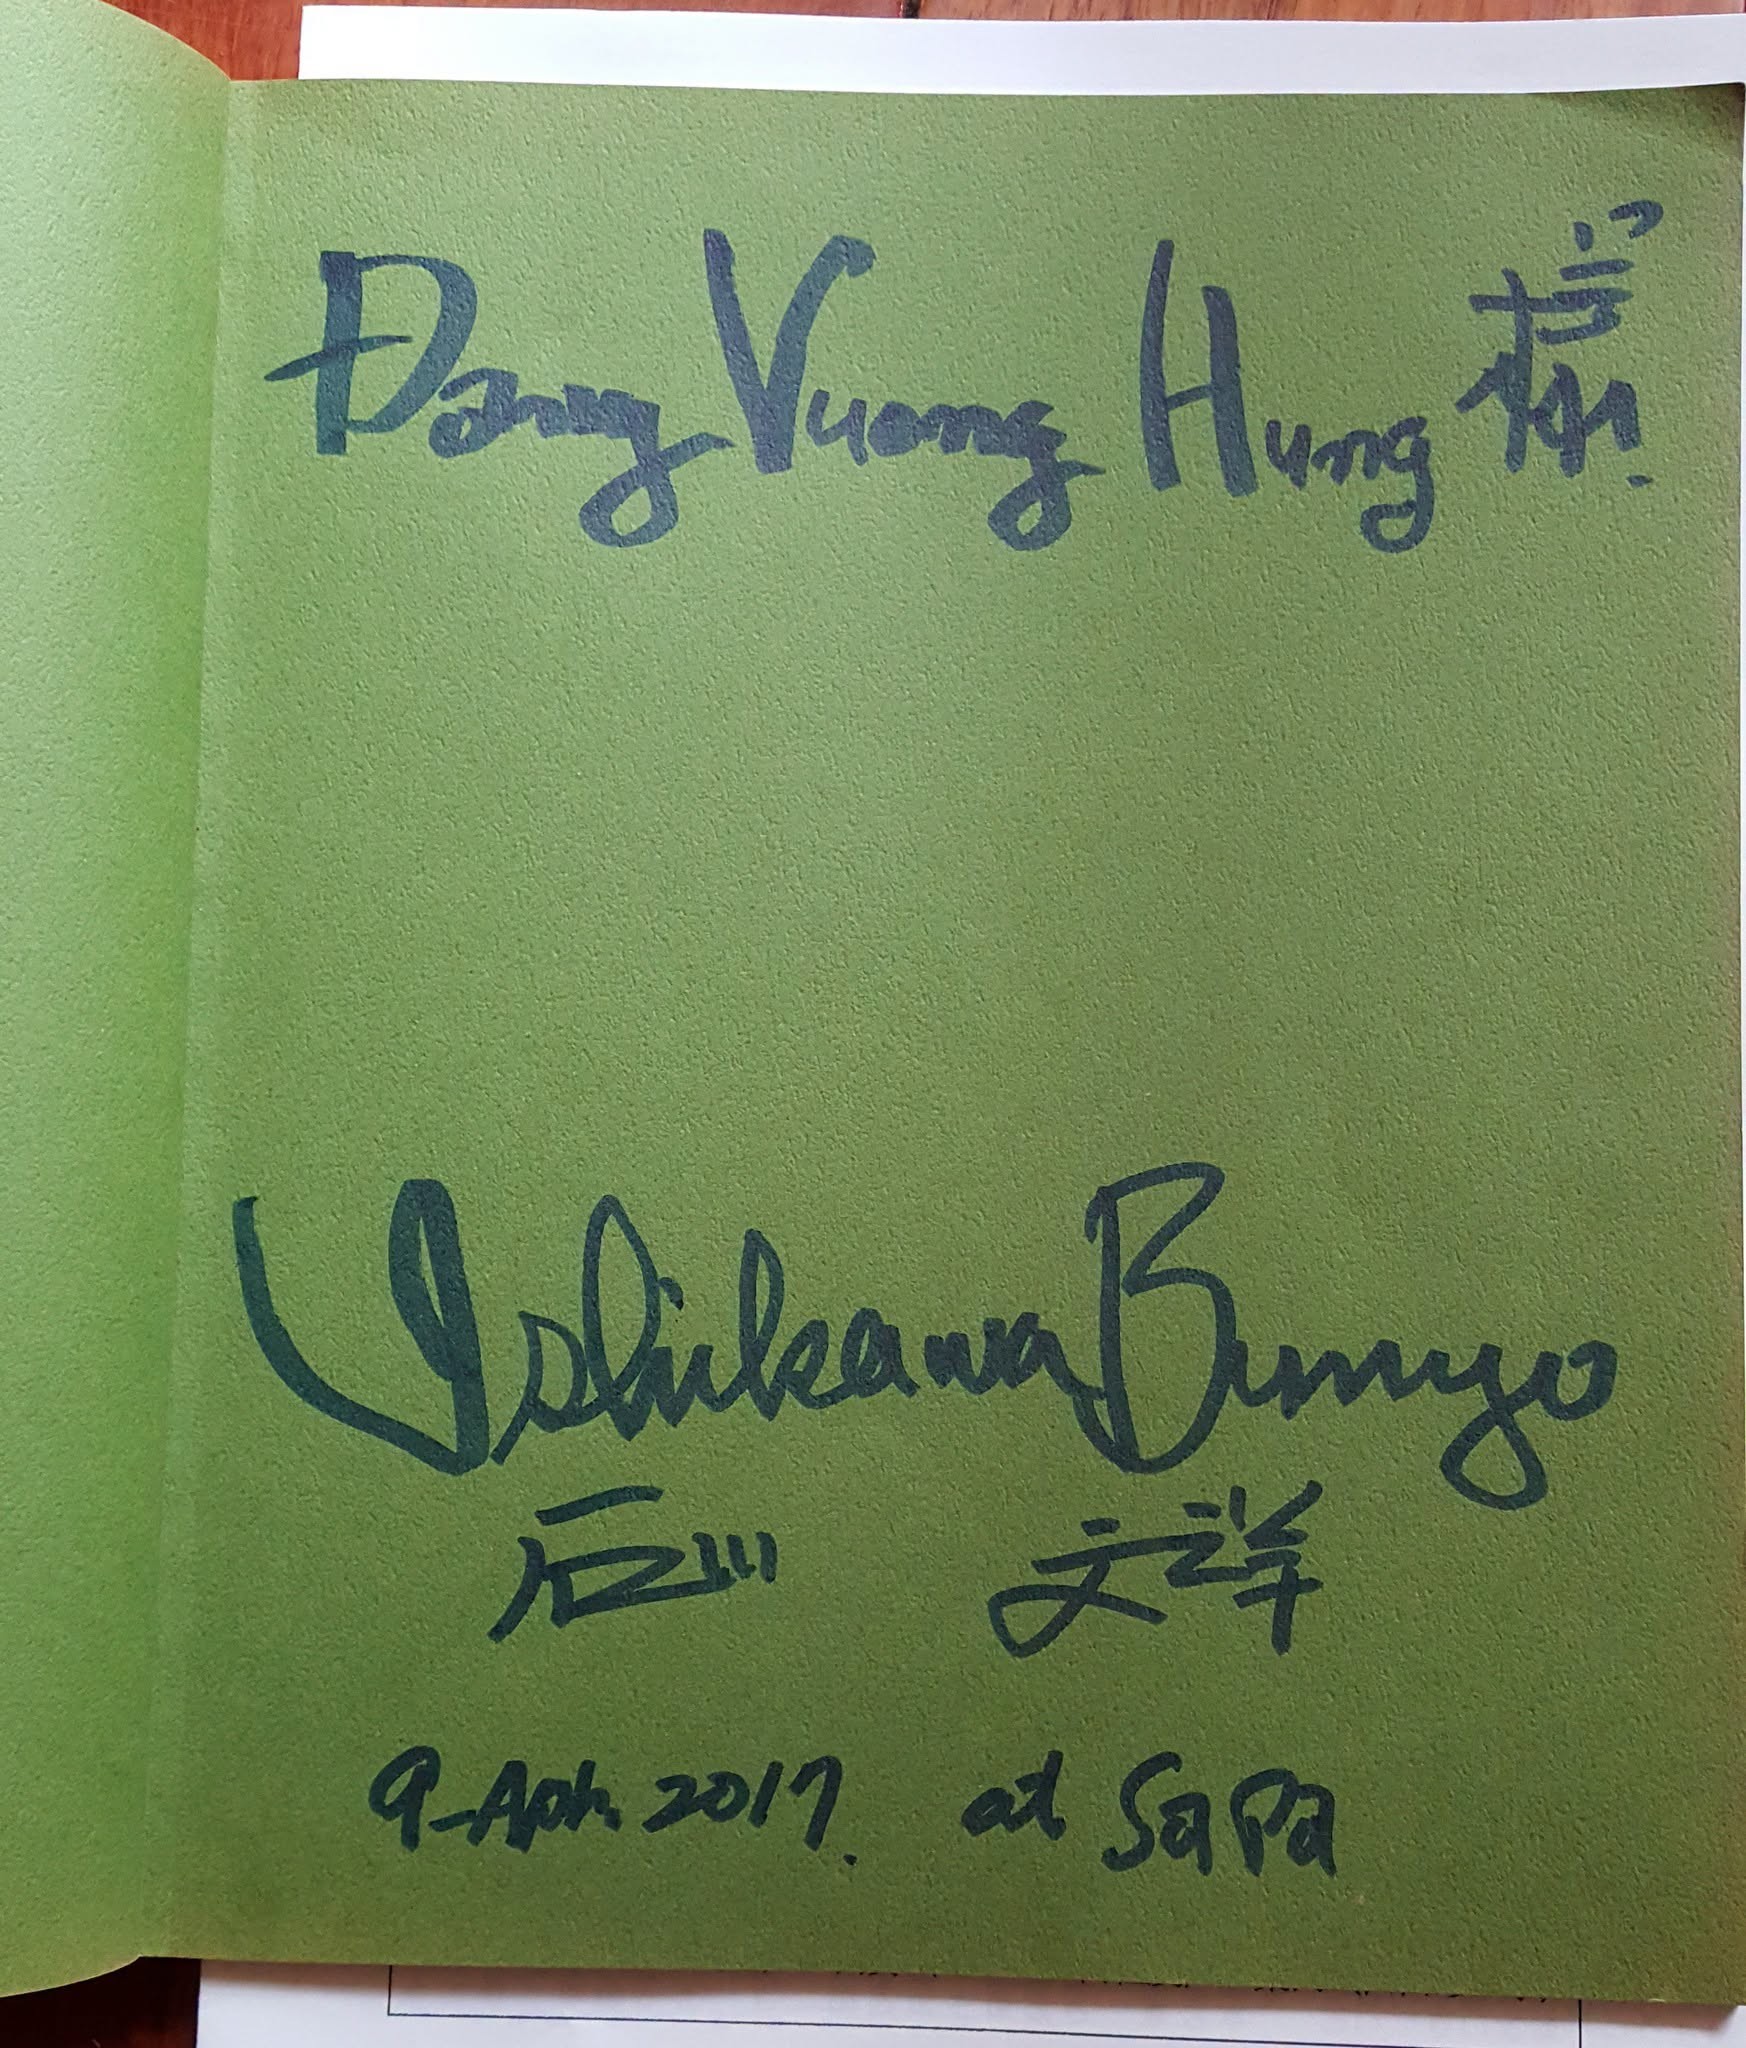 Đang Vuong Hung 様
Ishikawa Bunyo
石川 文洋
9-Apr. 2017. at SaPa